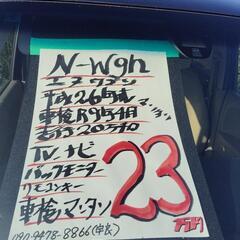 N-Wgn
エヌワゴン
平成26年
車検R9年4月
マンタン
TV.ナビ
バックモニター
リモコンキー
車検マンタン
23
万円
090-9478-8866